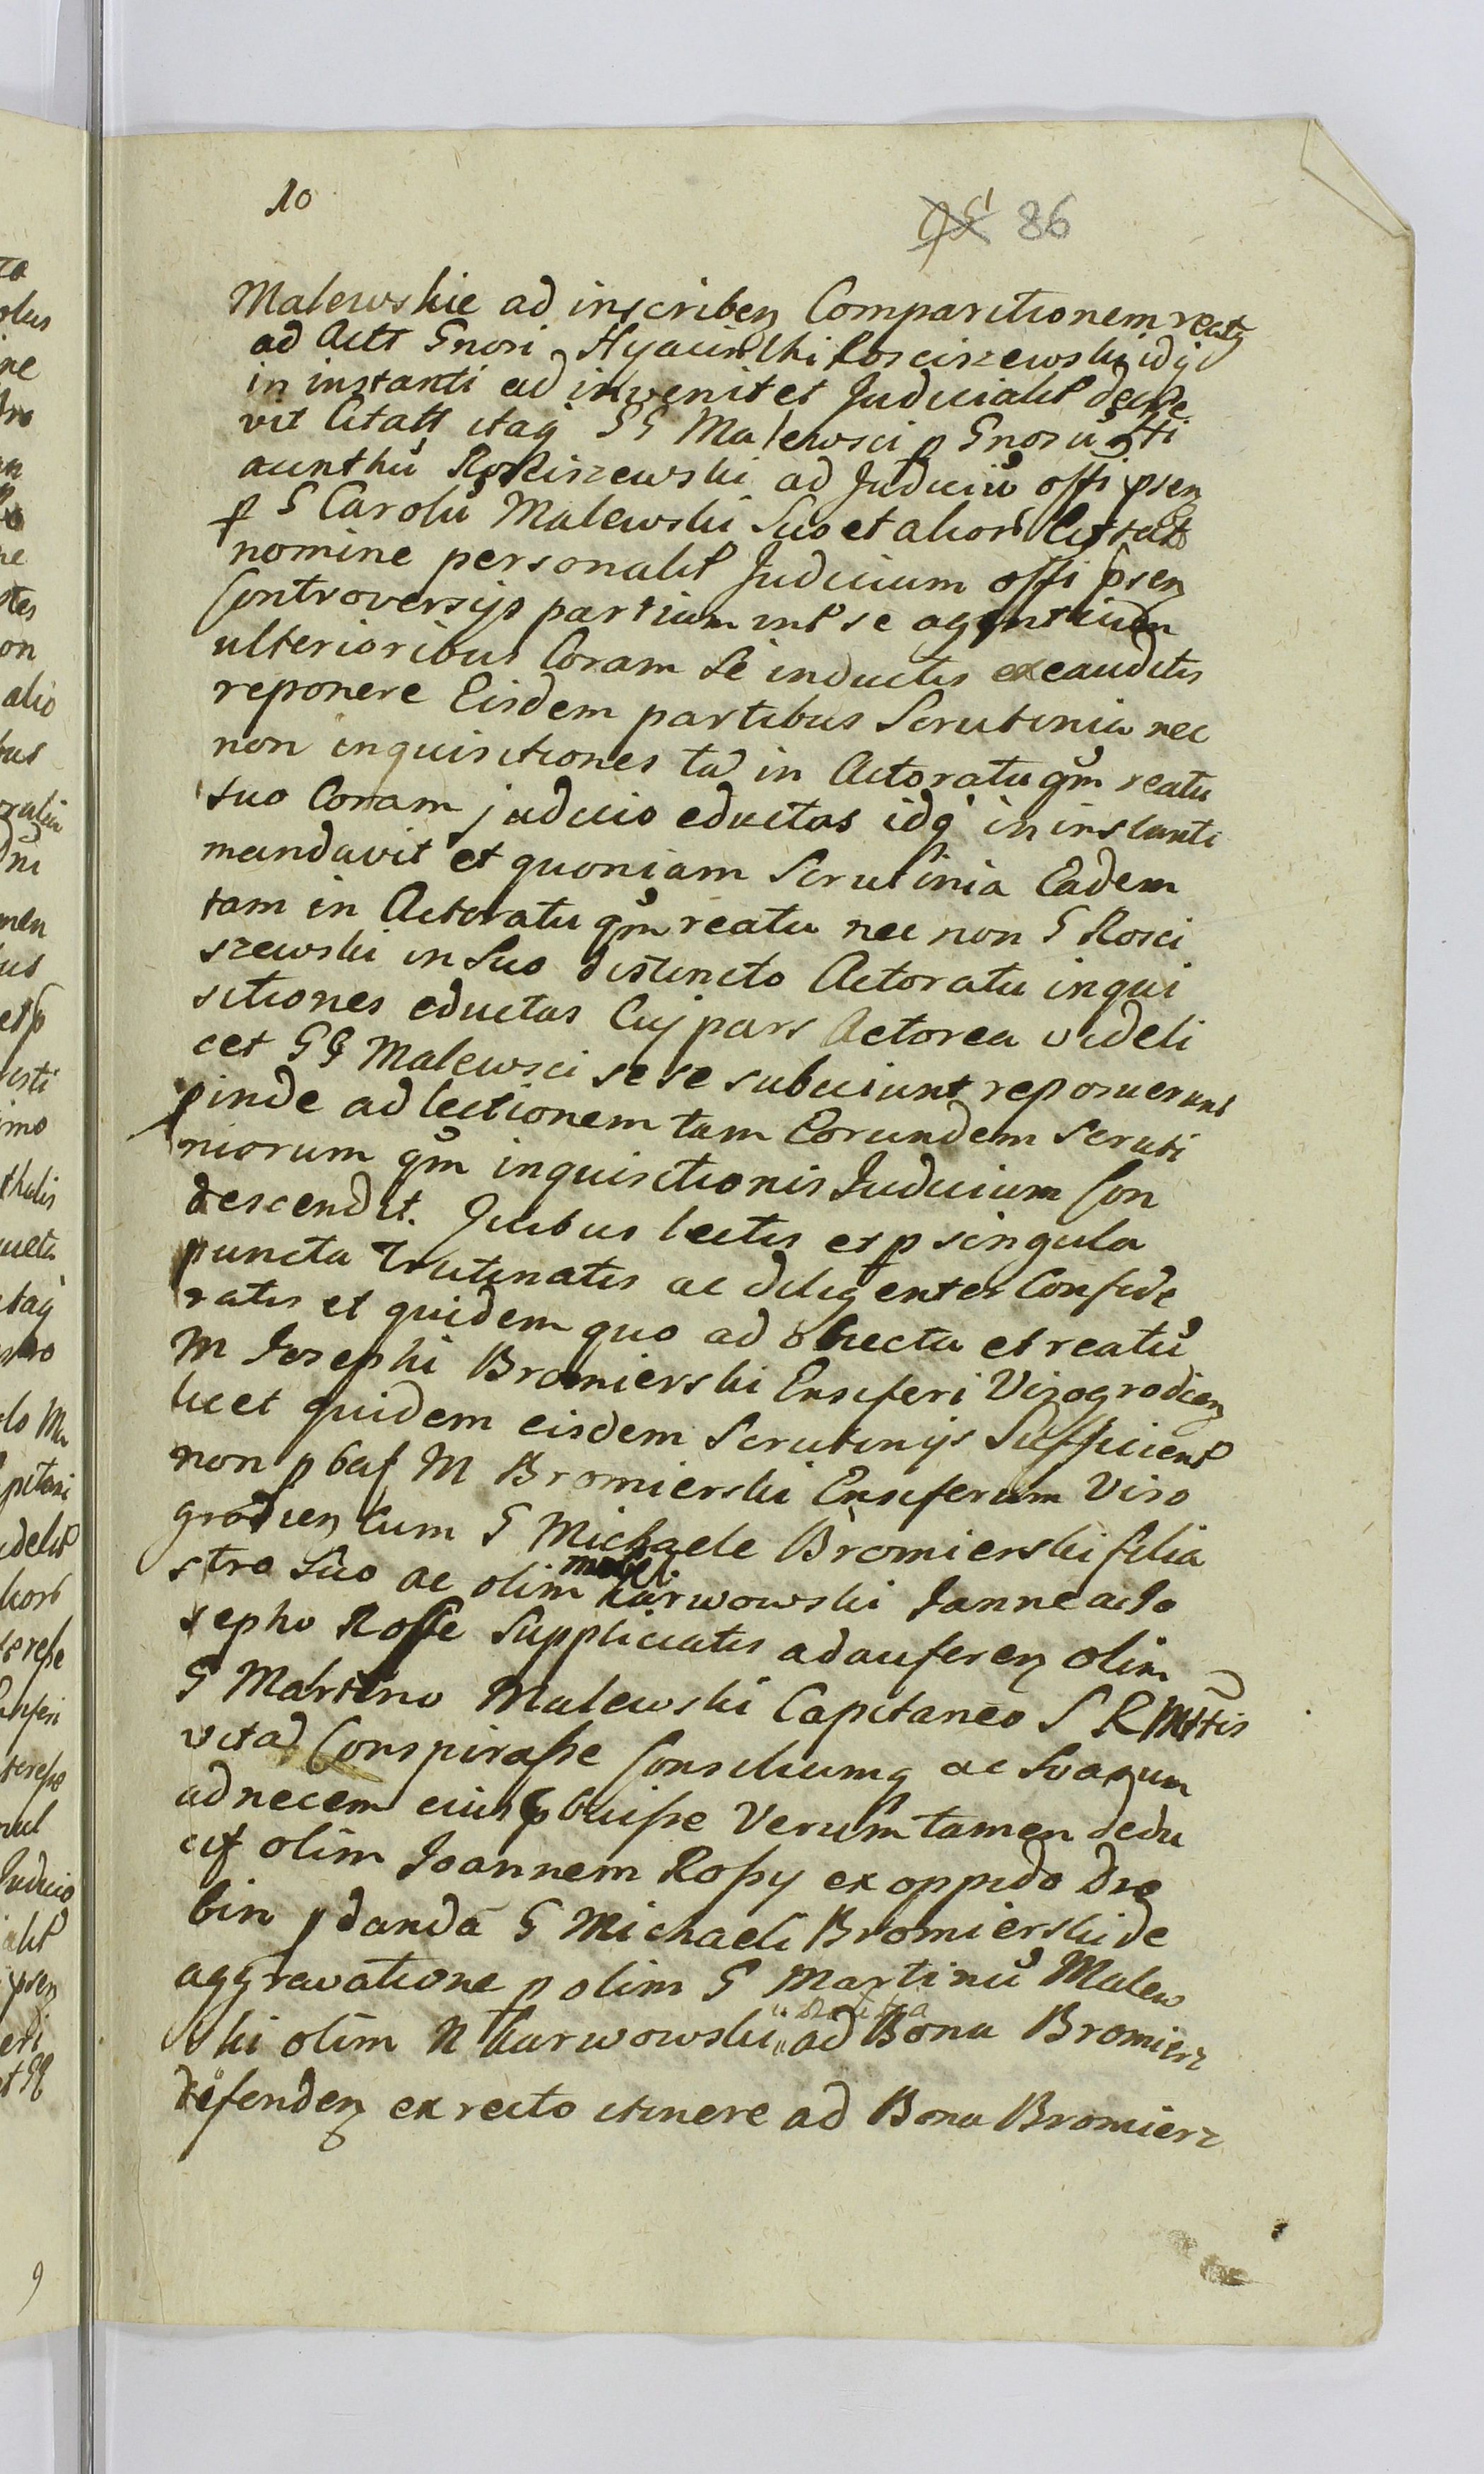 10
86
Malewskie ad inscriben Comparitionem reatg
ad Actt Gnosi Hyacinthi Rosciszewski idq
in instanti ad invenit et Judicialit decre
vit Citatt itaq GG Malewsci p Gnosū Hi
acinthū Rosciszewski ad Judiciū offi psen
p G Carolū Malewski Suo et alior Citatt
nomine personalit Judicium offi psen
Controversijs partium int se agentium
ulterioribus Coram Se inductis exauditis
reponere Eisdem partibus Scrutinia nec
non inquisitiones tā in Actoratu qm reatu
suo Coram judicio eductas idq in instanti
mandavit et quoniam Scrutinia Eadem
tam in Actoratu qm reatu nec non G Rosci
szewski in Suo distincto Actoratu inqui
sitiones eductas Cuj pars Actorea videli
cet GG Malewsci sese subiiciunt reposuerunt
pinde ad lectionem tam Eorundem Scruti
niorum qm inquisitionis Judicium Con
descendit. Quibus lectis et p singula
puncta Trutinatis ac diligenter Conside
ratis et quidem quo ad obiecta et reatū
M Josephi Bromierski Ensiferi Vizogrodien
licet quidem eisdem Scrutinijs Sufficient
non pbat M Bromierski Ensiferum Vizo
grodien Cum G Michaele Bromierski filia
stro Suo ac olim Karwowski Janne ac Jo
sepho Rosse Suppliciatis ad auferen olim
G Martino Malewski Capitaneo S R Mttis
vitā Conspirasse Consiliumq ac Svasum
ad necem eius pbuisse Verum tamen dedu
cit olim Joannem Rossy ex oppido Dro
bin p danda G Michaeli Bromierski de
aggravatione p olim G Martinū Malew
ski olim N Karwowski ad Bona Bromierz
defenden ex recto itinere ad Bona Bromierz